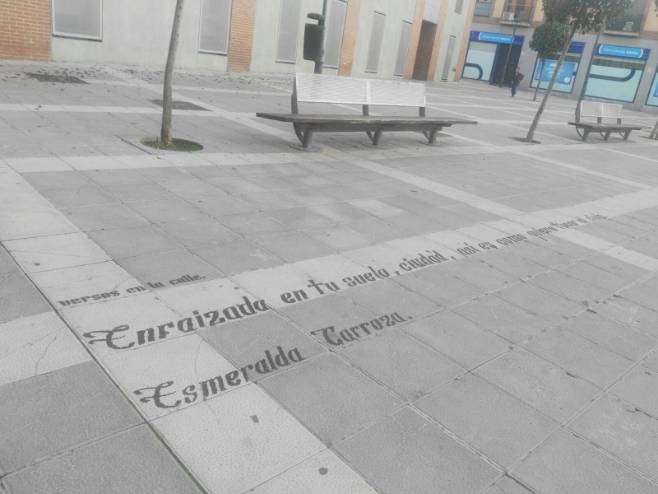 versos en la calle.
Enraizada en tu suelo, ciudad, así es como quiero
Esmeralda Carroza.